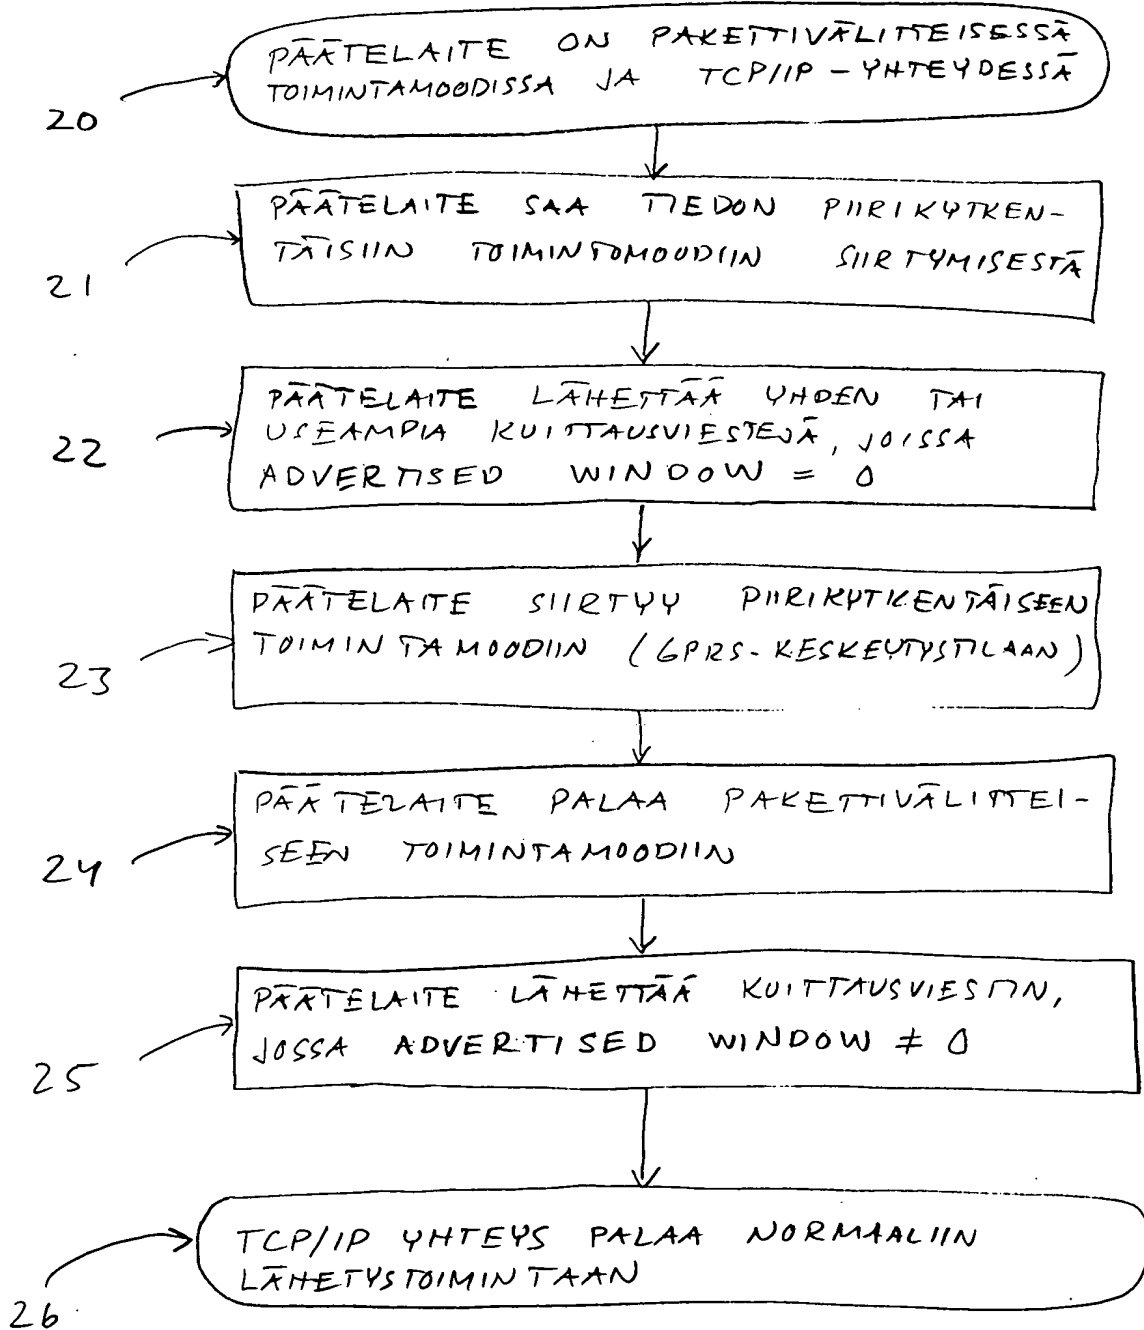 PÄÄTELAITE ON PAKETTIVÄLITTEISESSÄ
TOIMINTAMOODISSA JA TCP/IP-YHTEYDESSÄ
20
PÄÄTELAITE SAA TIEDON PIIRIKYTKEN-
TÄISIIN TOIMINTOMOODIIN SIIRTYMISESTÄ
21
PÄÄTELAITE LÄHETTÄÄ YHDEN TAI
USEAMPIA KUITTAUSVIESTEJÄ, JOISSA
ADVERTISED WINDOW = 0
22
PÄÄTELAITE SIIRTYY PIIRIKYTKENTÄISEEN
TOIMINTAMOODIIN (GPRS-KESKEYTYSTILAAN)
23
PÄÄTELAITE PALAA PAKETTIVÄLITTEI-
SEEN TOIMINTAMOODIIN
24
PÄÄTELAITE LÄHETTÄÄ KUITTAUSVIESTIN,
JOSSA ADVERTISED WINDOW ≠ 0
25
TCP/IP YHTEYS PALAA NORMAALIIN
LÄHETYSTOIMINTAAN
26